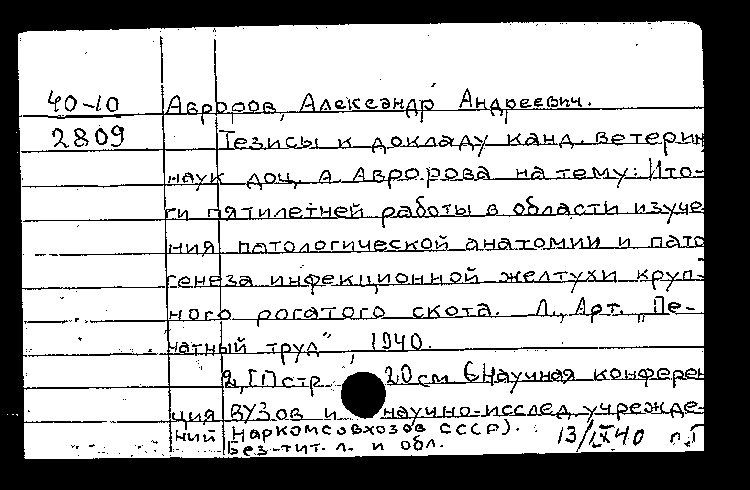 40-10 Авроров, Александр Андреевич.
2809 Тезисы к докладу канд. ветерин
наук доц. А. Авророва на тему: Ито-
ги пятилетней работы в области изуче
ния патологической анатомии и пато
генеза инфекционной желтухи круп-
ного рогатого скота. Л., Арт. „Пе-
чатный труд", 1940.
2, [1] стр. 20 см (Научная конферен
ция ВУЗов и научно-исслед. учрежде-
ний Наркомсовхозов СССР).
Без тит. л. и обл. 13/IX40